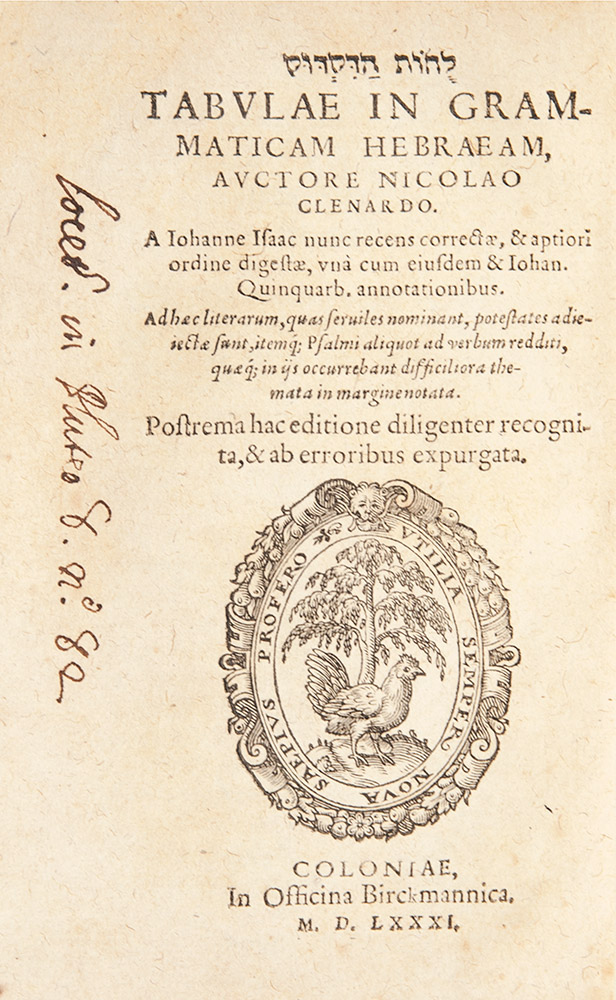 לֻחוֹת הַדִּקְדּוּק
TABVLAE IN GRAM-
MATICAM HEBRAEAM,
AVCTORE NICOLAO
CLENARDO.
A Iohanne Iſaac nunc recens correctæ, & aptiori
ordine digeſtæ, vnà cum eiuſdem & Iohan.
Quinquarb. annotationibus.
Ad hæc literarum, quas ſeruiles nominant, poteſtates adie-
iectæ ſunt, itemq́; Pſalmi aliquot ad verbum redditi,
quæq́; in ijs occurrebant difficiliora the-
mata in margine notata.
Poſtrema hac editione diligenter recogni-
ta, & ab erroribus expurgata.
PROFERO VTILIA SEMPER NOVA SAEPIVS
COLONIAE,
In Officina Birckmannica.
M. D. LXXXI.
in Pluteo 8. nº. 82